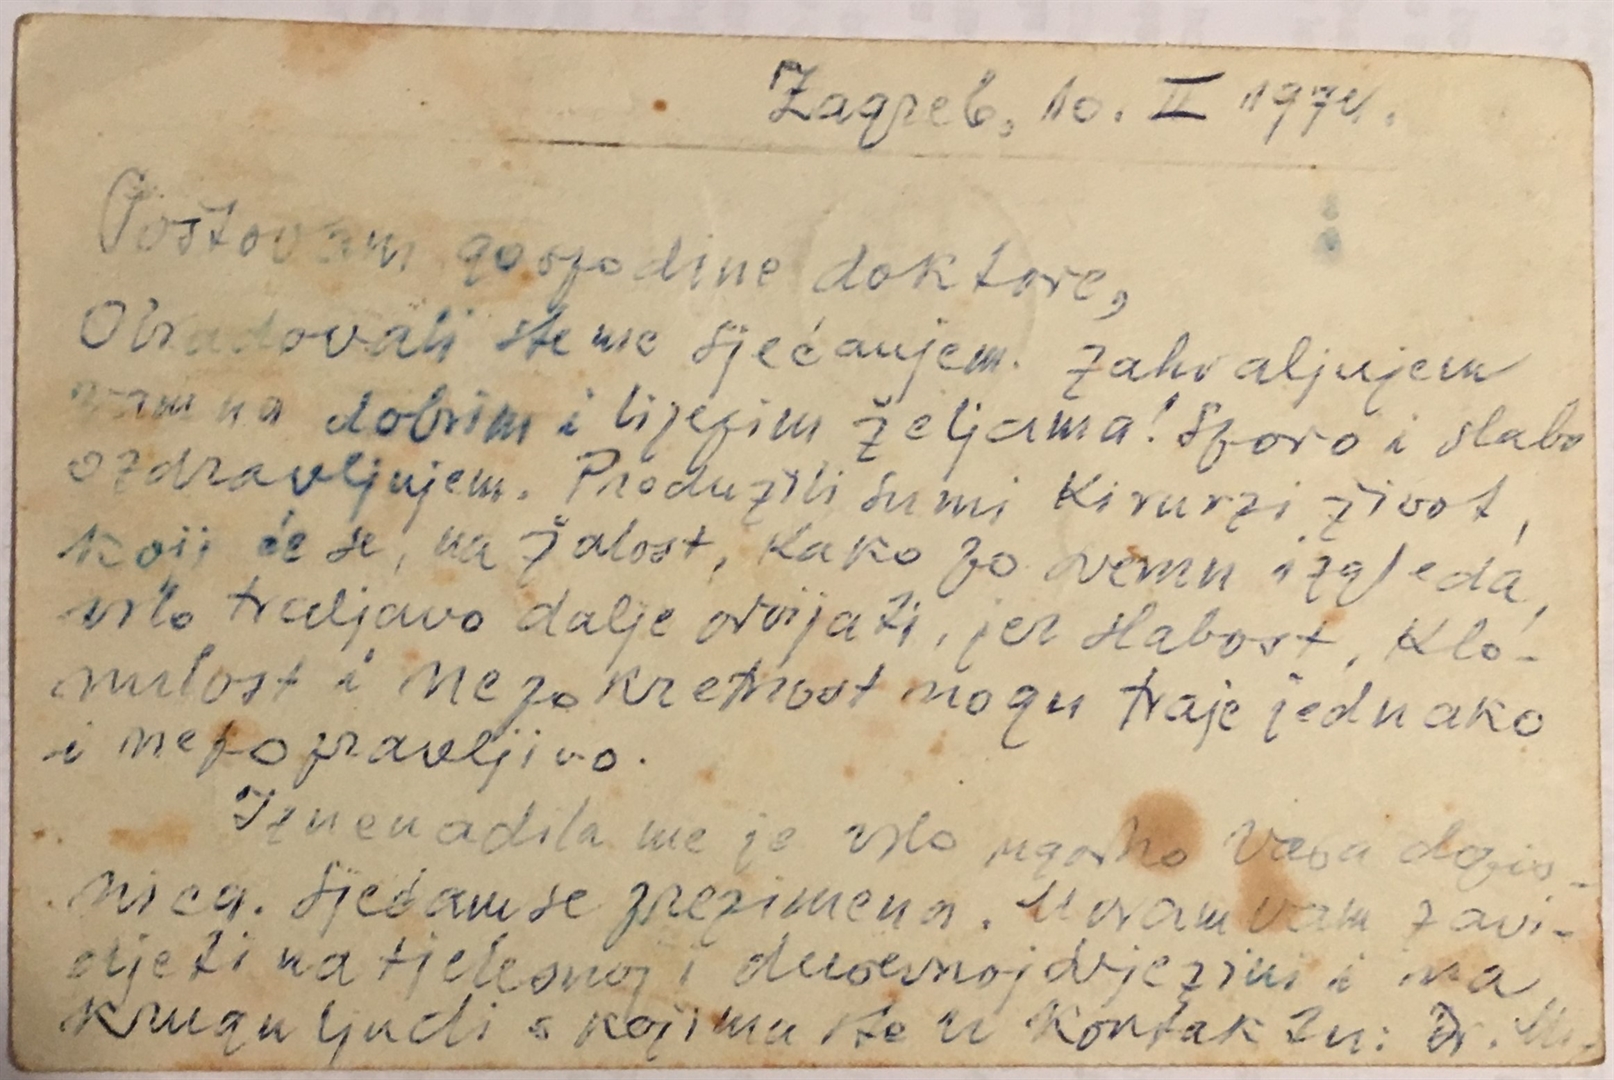 Zagreb, 10. II 1974.
Poštovani gospodine doktore,
Obradovali ste me sjećanjem. Zahvaljujem
vam na dobrim i lijepim željama! Sporo i slabo
ozdravljujem. Produžili su mi kirurzi život,
koji će se, na žalost, kako po svemu izgleda,
vrlo traljavo dalje odvijati, jer slabost, klo-
nulost i nepokretnost nogu traje jednako
i nepopravljivo.
Iznenadila me je vrlo ugodno Vaša dopis-
nica. Sjećam se prezimena. Moram vam zavi-
djeti na tjelesnoj i duševnoj svježini i na
krugu ljudi s kojima ste u kontaktu: Dr.